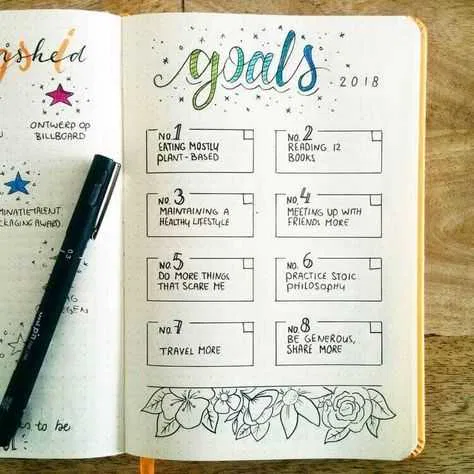 ished
ONTWERP OP
BILLBOARD
goals
2018
NO. 1
EATING MOSTLY
PLANT-BASED
NO. 2
READING 12
BOOKS
NO. 3
MAINTAINING A
HEALTHY LIFESTYLE
NO. 4
MEETING UP WITH
FRIENDS MORE
NO. 5
DO MORE THINGS
THAT SCARE ME
NO. 6
PRACTICE STOIC
PHILOSOPHY
NO. 7
TRAVEL MORE
NO. 8
BE GENEROUS,
SHARE MORE
MINATIE TALENT
CKAGING AWARD
to be